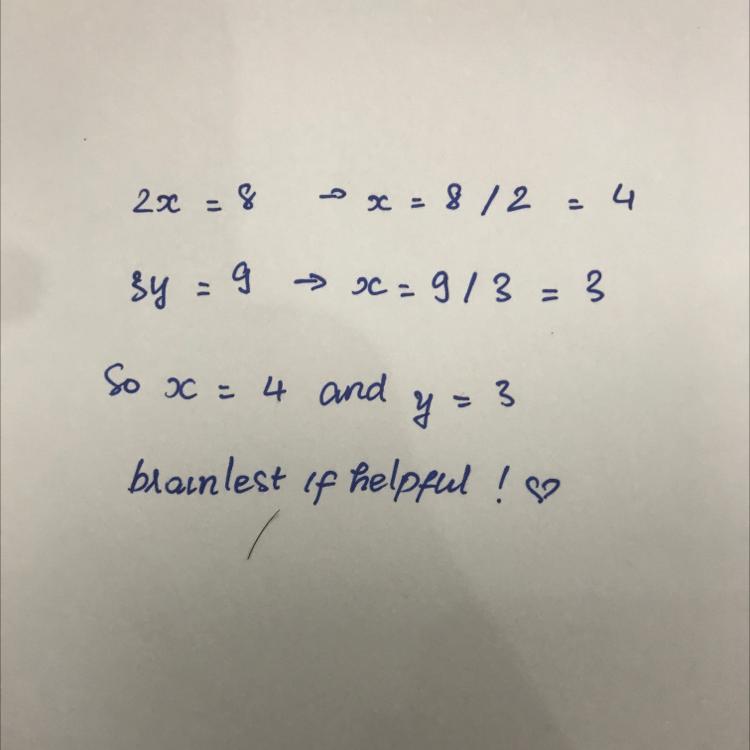 2x = 8 → x = 8 / 2 = 4
3y = 9 → x = 9 / 3 = 3
So x = 4 and y = 3
brainlest if helpful ! ♡